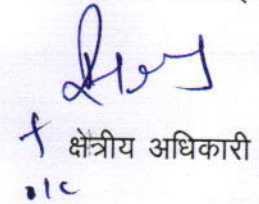 क्षेत्रीय अधिकारी
o/c